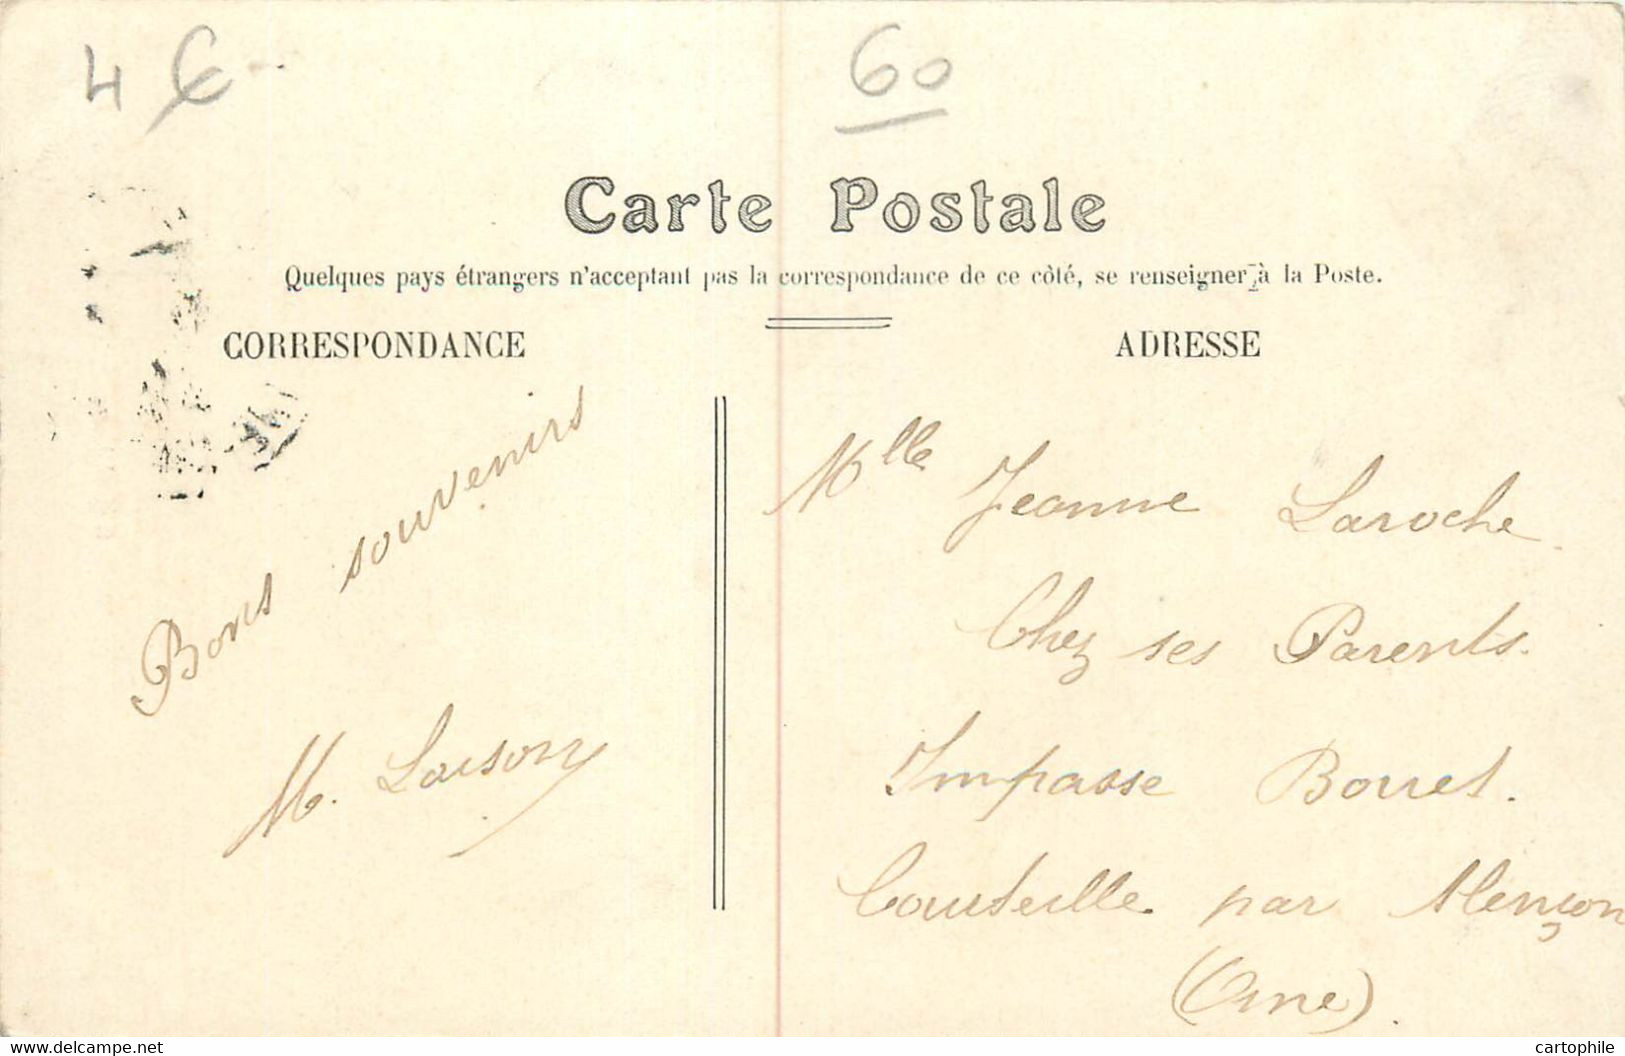 4 €
60
Carte Postale
Quelques pays étrangers n'acceptant pas la correspondance de ce côté, se renseigner à la Poste.
CORRESPONDANCE
ADRESSE
Bons souvenirs
M. Loison
Mlle Jeanne Laroche
Chez ses Parents.
Impasse Bouret.
Courteille par Alençon
(Orne).
www.delcampe.net
cartophile